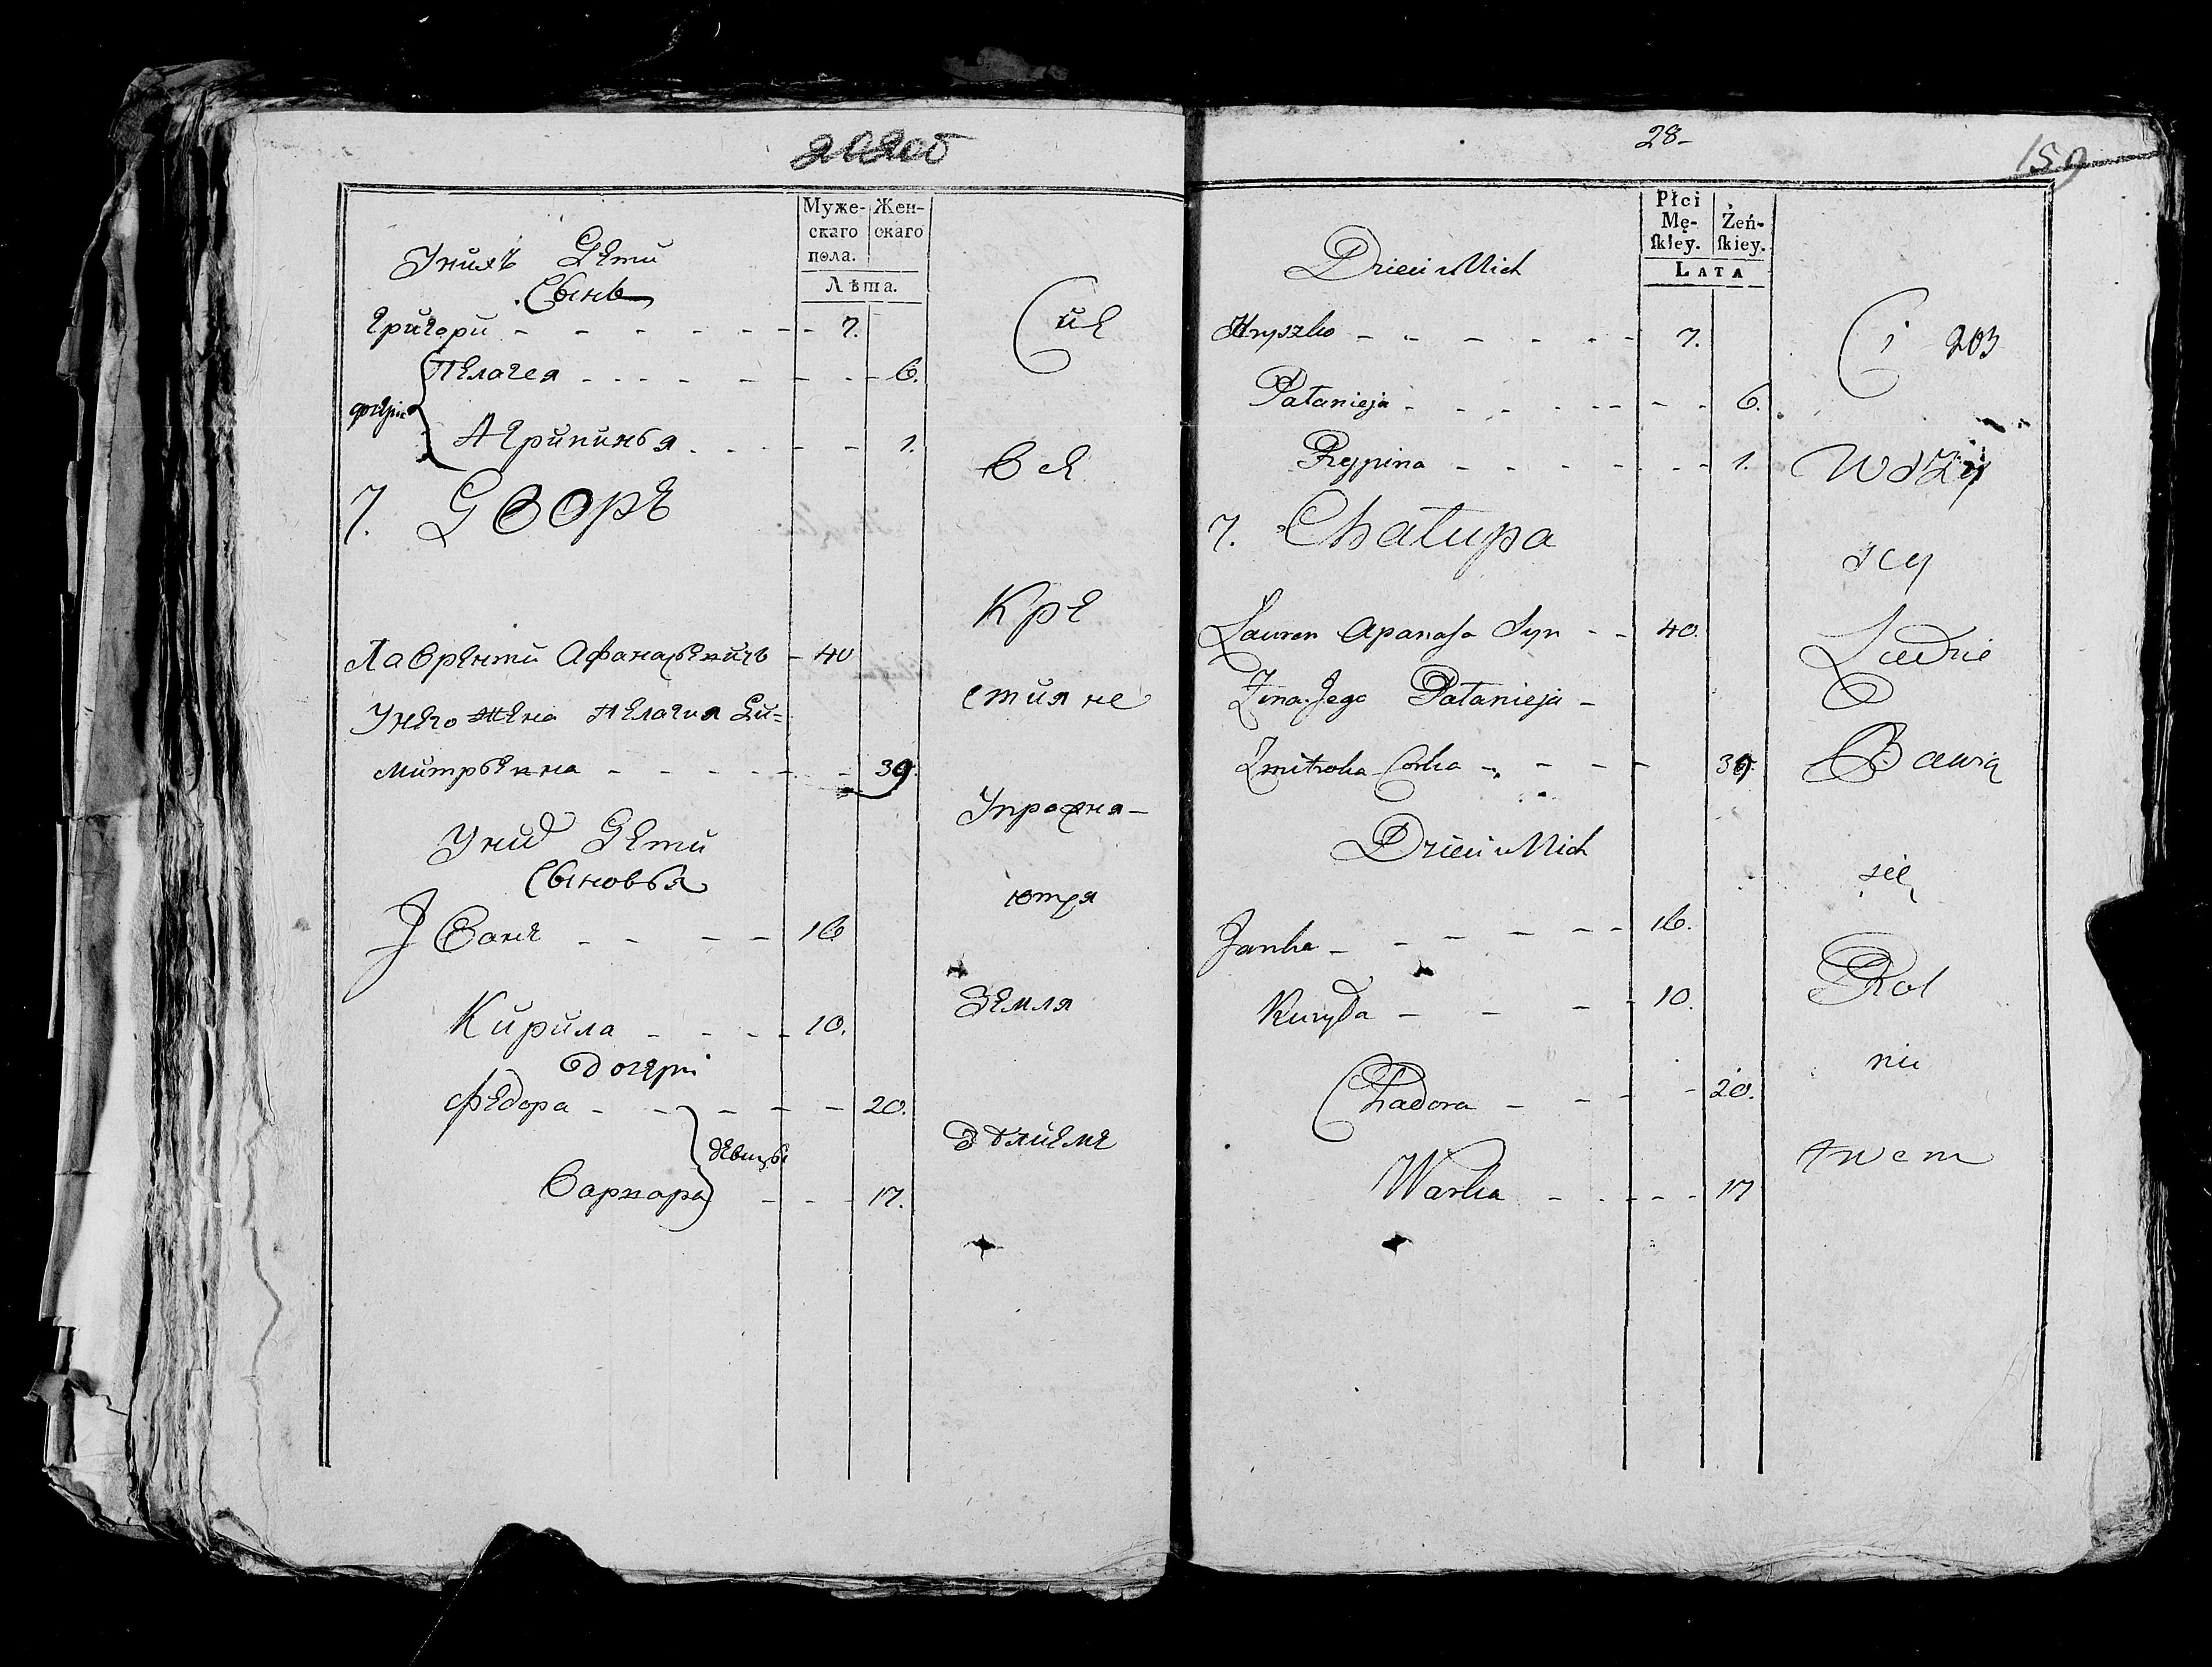 Муже-
скаго
пола.
Жен-
скаго
Лѣта.
Унихъ Дети
Сынъ
Григори 7.
Пелагея 6.
дочери
Агрипинья 1.
7. Дворъ
Лаврентй Афанасьевичъ 40
Унего жена Пелагия Ди=
митрьевна 39.
Унихъ Дети
Сыновья
Jване 16
Кирила 10.
дочери
Федора 20.
девицы
Варвара 17.
Сие
все
кре
стияне
Упражня-
ются
Земля
дѣлием
28-
159
Płci
Mę-
ſkiey.
Żeń-
ſkiey.
LATA
Dzieci u Nich
Hryszko 7.
Pałanieja 6.
Rypina 1.
7. Chałupa
Lauren Apanasa Syn 40.
Żona Jego Pałanieja
Zmitroka Corka 39.
Dzieci u Nich
Janka 16.
Kuryła 10.
Chadora 20.
Warka 17
Ci 203
wszy
scy
Ludzie
Bawią
się
Rol
nic
twem